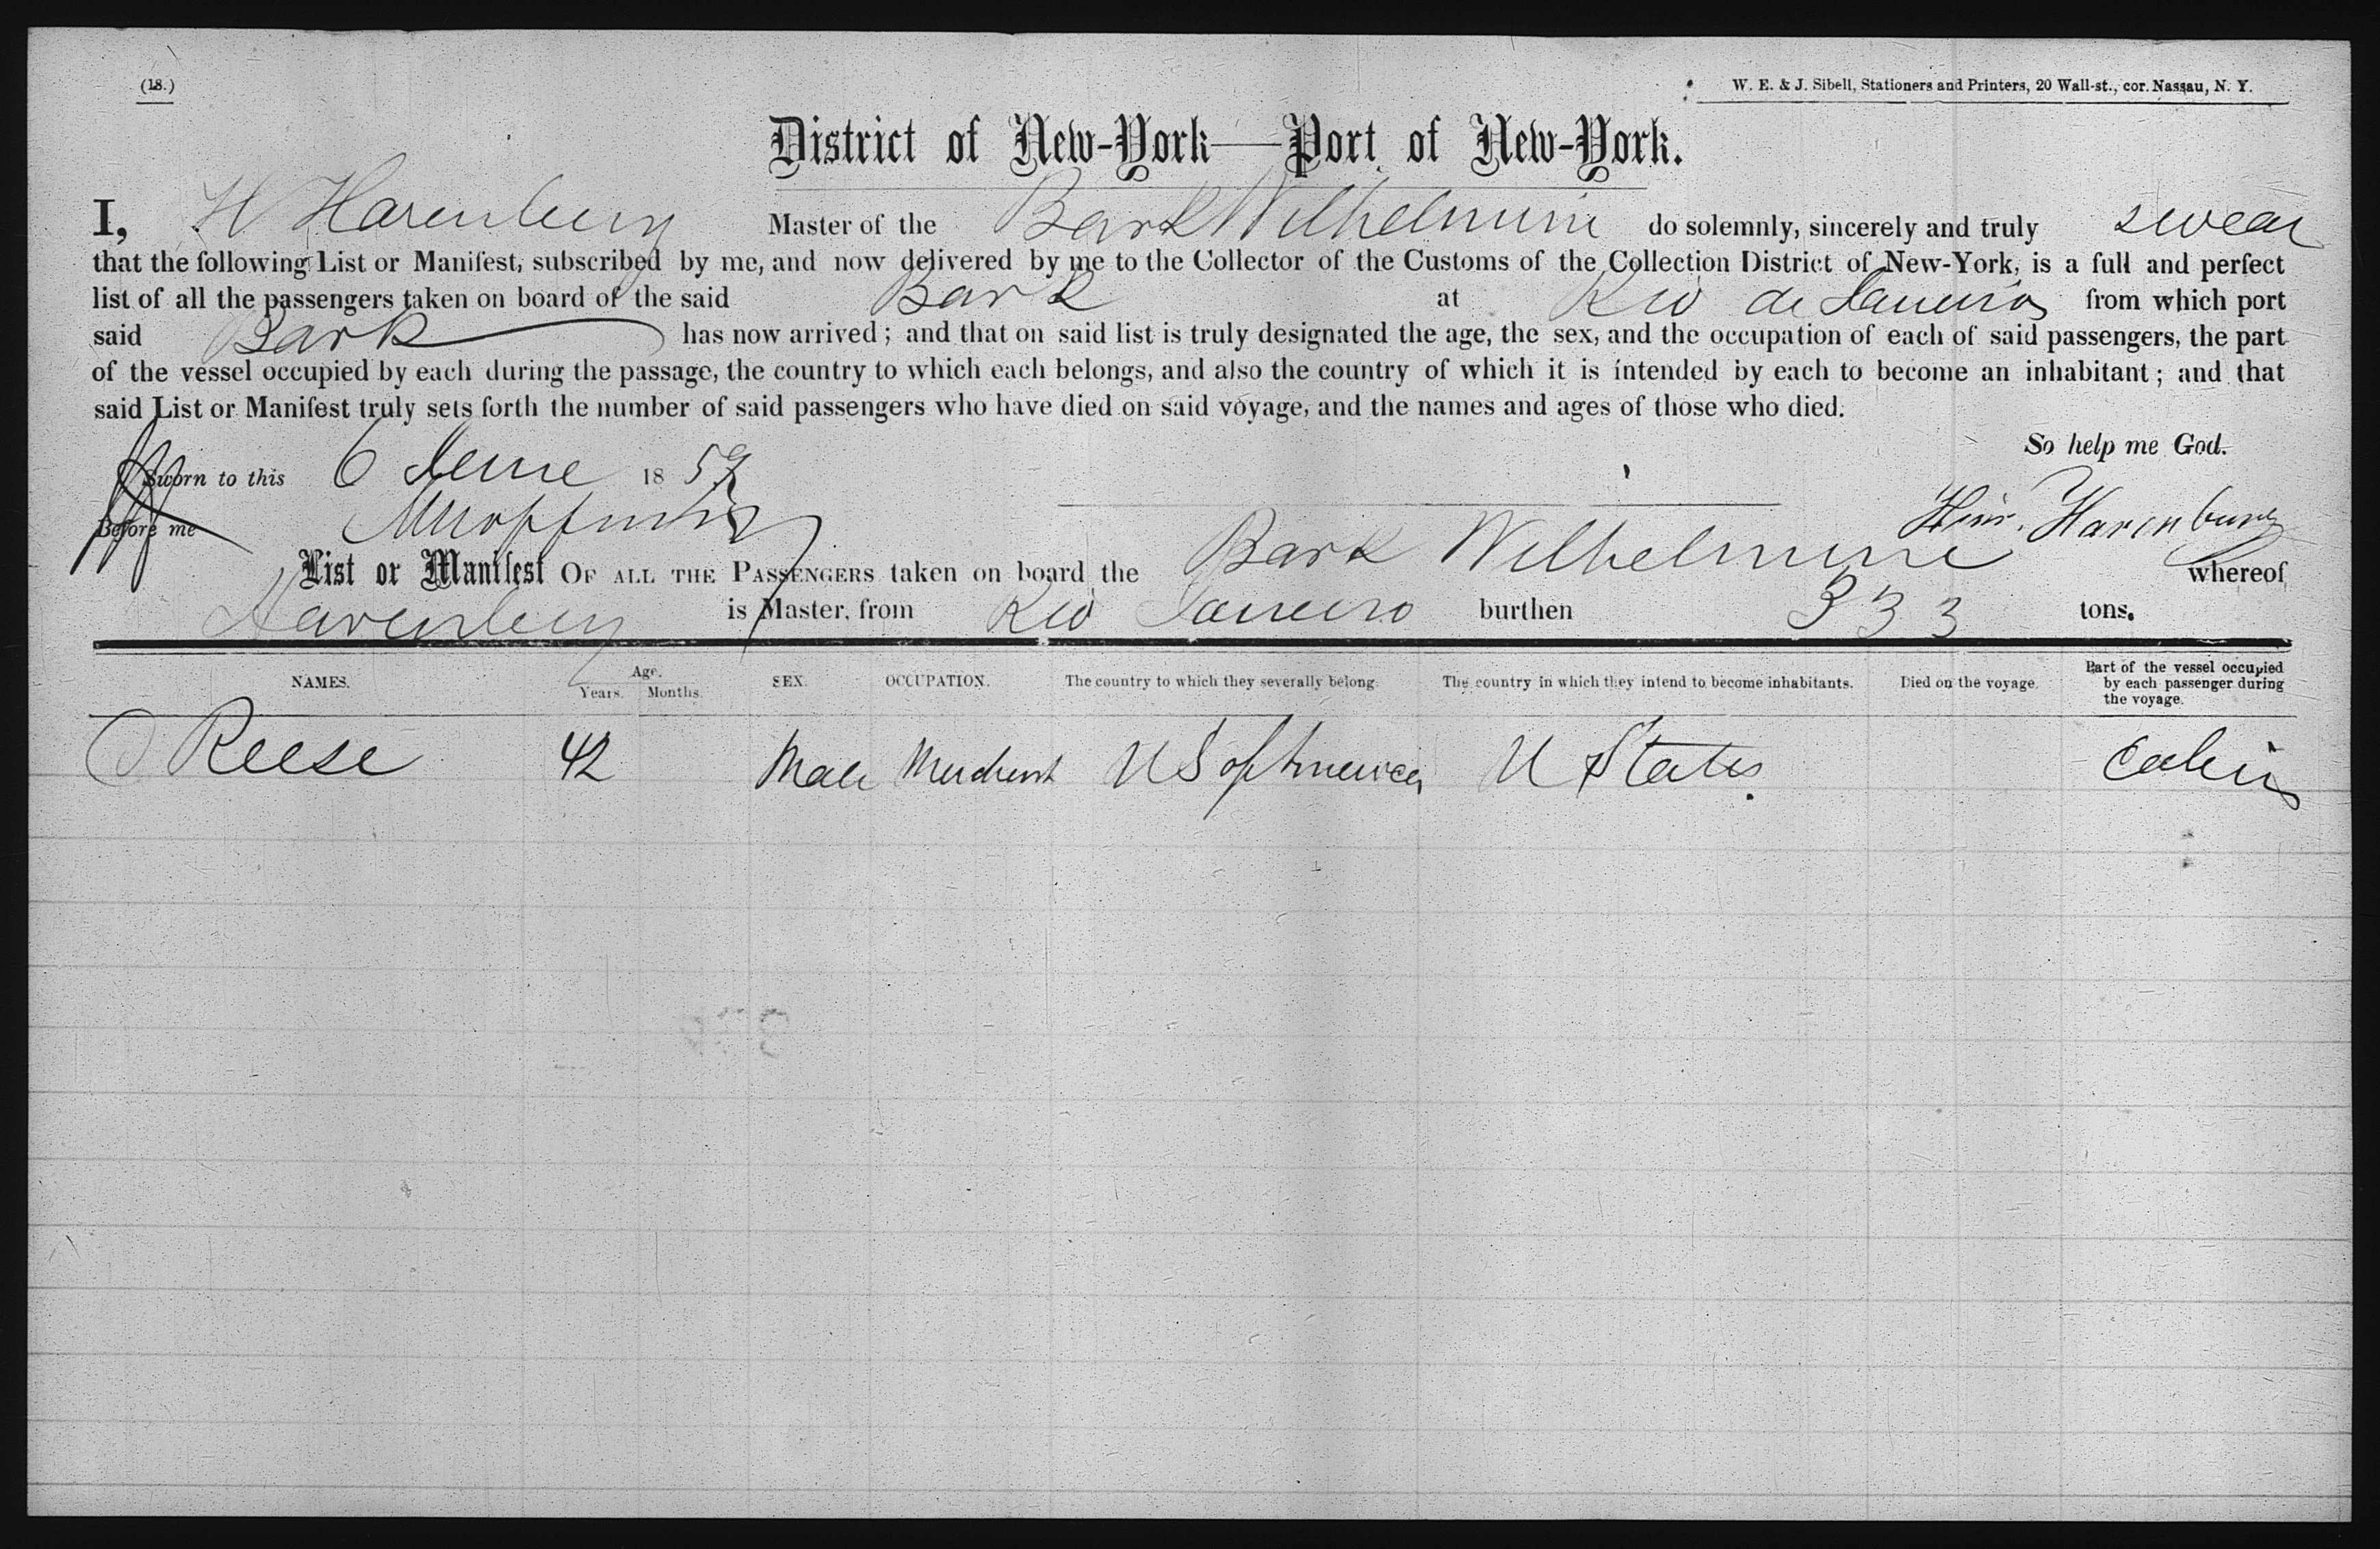 (18.)
W. E. & J. Sibell, Stationers and Printers, 20 Wall-st., cor. Nassau, N. Y.
District of New-York—Port of New-York.
I, H Harenburg Master of the Bark Wilhelmine do solemnly, sincerely and truly swear
that the following List or Manifest, subscribed by me, and now delivered by me to the Collector of the Customs of the Collection District of New-York, is a full and perfect
list of all the passengers taken on board of the said Bark at Rio de Janeiro from which port
said Bark has now arrived; and that on said list is truly designated the age, the sex, and the occupation of each of said passengers, the part
of the vessel occupied by each during the passage, the country to which each belongs, and also the country of which it is intended by each to become an inhabitant; and that
said List or Manifest truly sets forth the number of said passengers who have died on said voyage, and the names and ages of those who died.
So help me God.
Sworn to this 6 June 1859
Hinr. Harenburg
Before me
List or Manifest OF ALL THE PASSENGERS taken on board the Bark Wilhelmine whereof
Harenburg is Master, from Rio Janeiro burthen 333 tons.
NAMES. Age. Years. Months. SEX. OCCUPATION. The country to which they severally belong. The country in which they intend to become inhabitants. Died on the voyage. Part of the vessel occupied by each passenger during the voyage.
Reese 42 Male Merchant U S of America U States Cabin